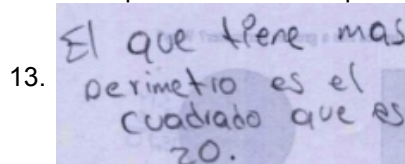 13. El que tiene mas
perimetro es el
cuadrado que es
20.